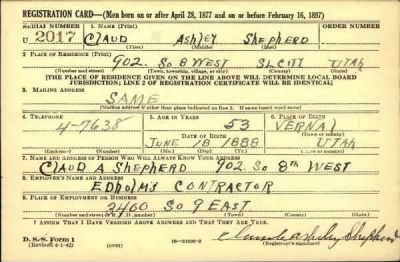 REGISTRATION CARD—(Men born on or after April 28, 1877 and on or before February 16, 1897)
SERIAL NUMBER 1. NAME (Print)
U 2017 CLAUD ASHLEY SHEPHERD
(First) (Middle) (Last)
2. PLACE OF RESIDENCE (Print)
902. So 8 WEST SL CITY UTAH
(Number and street) (Town, township, village, or city) (County) (State)
[THE PLACE OF RESIDENCE GIVEN ON THE LINE ABOVE WILL DETERMINE LOCAL BOARD
JURISDICTION; LINE 2 OF REGISTRATION CERTIFICATE WILL BE IDENTICAL]
3. MAILING ADDRESS
SAME
[Mailing address if other than place indicated on line 2. If same insert word same]
4. TELEPHONE 5. AGE IN YEARS 6. PLACE OF BIRTH
4-7638 53 VERNAL
DATE OF BIRTH (Town or county)
JUNE 18 1888 UTAH
(Exchange) (Number) (Mo.) (Day) (Yr.) (State or country)
7. NAME AND ADDRESS OF PERSON WHO WILL ALWAYS KNOW YOUR ADDRESS
CLAUD A SHEPHERD 902. So 8th WEST
8. EMPLOYER'S NAME AND ADDRESS
EDHOLMS CONTRACTOR
9. PLACE OF EMPLOYMENT OR BUSINESS
2460 So 9 EAST
(Number and street or R. F. D. number) (Town) (County) (State)
I AFFIRM THAT I HAVE VERIFIED ABOVE ANSWERS AND THAT THEY ARE TRUE.
D. S. S. Form 1
(Revised 4-1-42) (over) Ashley Shepherd
(Registrant's signature)